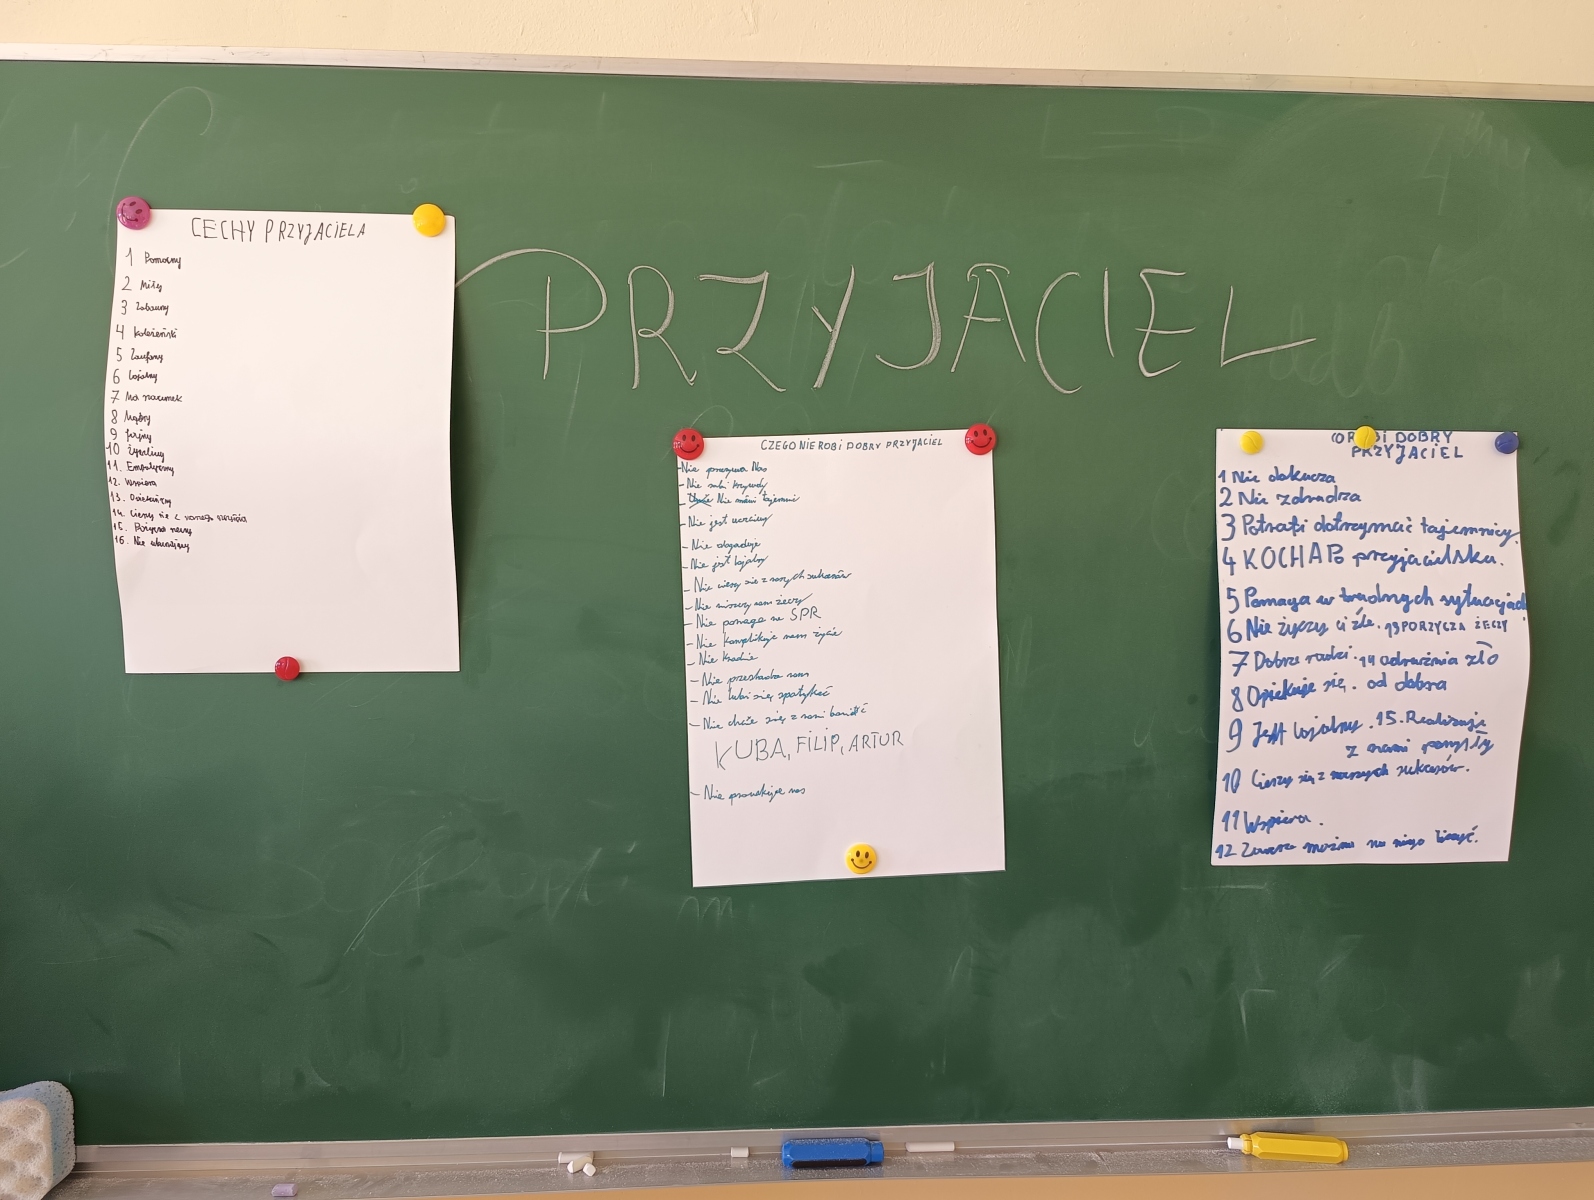 PRZYJACIEL
CECHY PRZYJACIELA
1 Pomocny
2 Miły
3 Zabawny
4 koleżeński
5 Zaufany
6 Lojalny
7 Ma szacunek
8 Mądry
9 fajny
10 Życzliwy
11. Empatyczny
12. Wspiera
13.
14. Cieszy się z naszego szczęścia
15. Pożycza rzeczy
16. Nie
CZEGO NIE ROBI DOBRY PRZYJACIEL
-Nie przezywa Nas
- Nie robi krzywdy
- Nie mówi tajemnic
- Nie jest uczciwy
- Nie obgaduje
- Nie jest lojalny
- Nie cieszy się z naszych sukcesów
- Nie niszczy nam żeczy
- Nie pomaga na SPR
- Nie komplikuje nam życie
- Nie kradnie
- Nie przeszkadza nam
- Nie lubi się spotykać
- Nie chcie się z nami bawić
KUBA, FILIP, ARTUR
- Nie prowokuje nas
CO ROBI DOBRY
PRZYJACIEL
1 Nie dokucza
2 Nie zdradza
3 Potrafi dotrzymać tajemnicy.
4 KOCHA Po przyjacielsku.
5 Pomaga w trudnych sytuacjach
6 Nie życzy ci źle. 13 PORZYCZA ŻECZY
7 Dobrze radzi. 14 odrużnia zło
8 Opiekuje się. od dobra
9 Jest lojalny. 15. Realizuje
z nami pomysły
10 Cieszy się z naszych sukcesów.
11 Wspiera.
12 Zawsze można na niego liczyć.